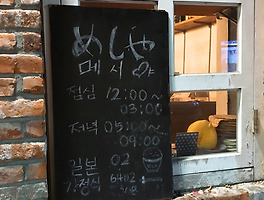 めしや
메시야
점심 12:00~
03:00
저녁 05:00~
09:00
일본 02
가정식 6402